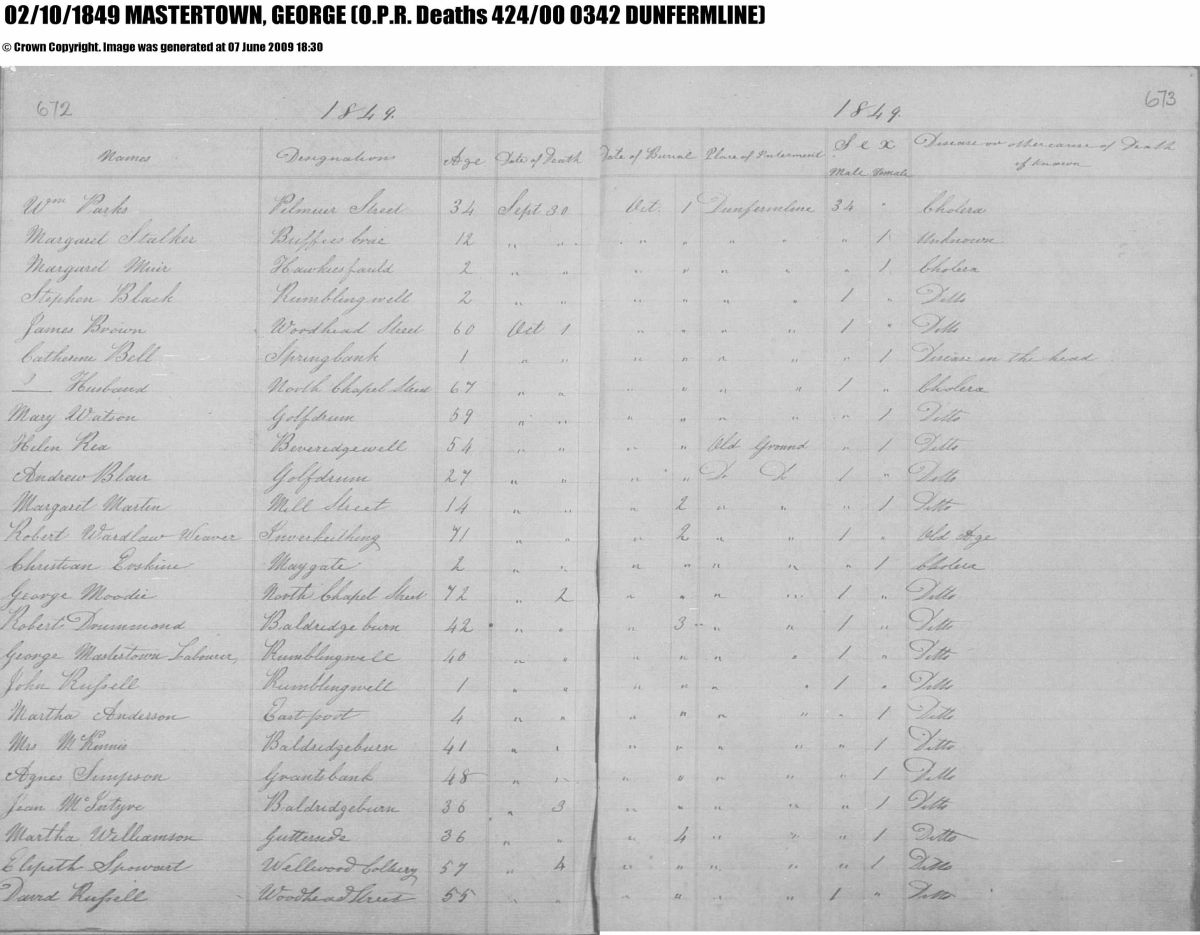 02/10/1849 MASTERTOWN, GEORGE (O.P.R. Deaths 424/00 0342 DUNFERMLINE)
© Crown Copyright. Image was generated at 07 June 2009 18:30
672 1849. 1849. 673
Names Designations Age Date of Death Date of Burial Place of Interment Sex Disease or other cause of Death
Male Female if known
Wm Parks Pilmuir Street 34 Sept 30 Oct. 1 Dunfermline 34 " Cholera
Margaret Stalker 12 " " " " " " " " 1 Unknown
Margaret Muir Hawkiesfauld 2 " " " " " " " 1 Cholera
Stephen Black Rumblingwell 2 " " " " " " 1 " Ditto
James Brown Woodhead Street 60 Oct 1 " " " " 1 " Ditto
Catherine Bell Springbank 1 " " " " " " " 1 Disease in the head
Husband North Chapel Street 67 " " " " " " 1 " Cholera
Mary Watson Golfdrum 59 " " " " " " " 1 Ditto
Helen Rea Beveridgewell 54 " " " " Old Ground " 1 Ditto
Andrew Blair Golfdrum 27 " " " " Do Do 1 " Ditto
Margaret Martin Mill Street 14 " " " 2 " " " 1 Ditto
Robert Wardlaw Weaver Inverkeithing 71 " " " 2 " " 1 " Old Age
Christian Erskine Maygate 2 " " " " " " " 1 Cholera
George Moodie North Chapel Street 72 " 2 " " " " 1 " Ditto
Robert Drummond Baldridgeburn 42 " " " 3 " " 1 " Ditto
George Mastertown Labourer, Rumblingwell 40 " " " " " " 1 " Ditto
John Russell Rumblingwell 1 " " " " " " 1 " Ditto
Martha Anderson East port 4 " " " " " " " 1 Ditto
Mrs McKinnis Baldridgeburn 41 " " " " " " " 1 Ditto
Agnes Simpson Grantsbank 48 " " " " " " " 1 Ditto
Jean McIntyre Baldridgeburn 36 " 3 " " " " " 1 Ditto
Martha Williamson Gutterside 36 " " " 4 " " " 1 Ditto
Elspeth Spowart Wellwood Colliery 57 " 4 " " " " " 1 Ditto
David Russell Woodhead Street 55 " " " " " " 1 " Ditto